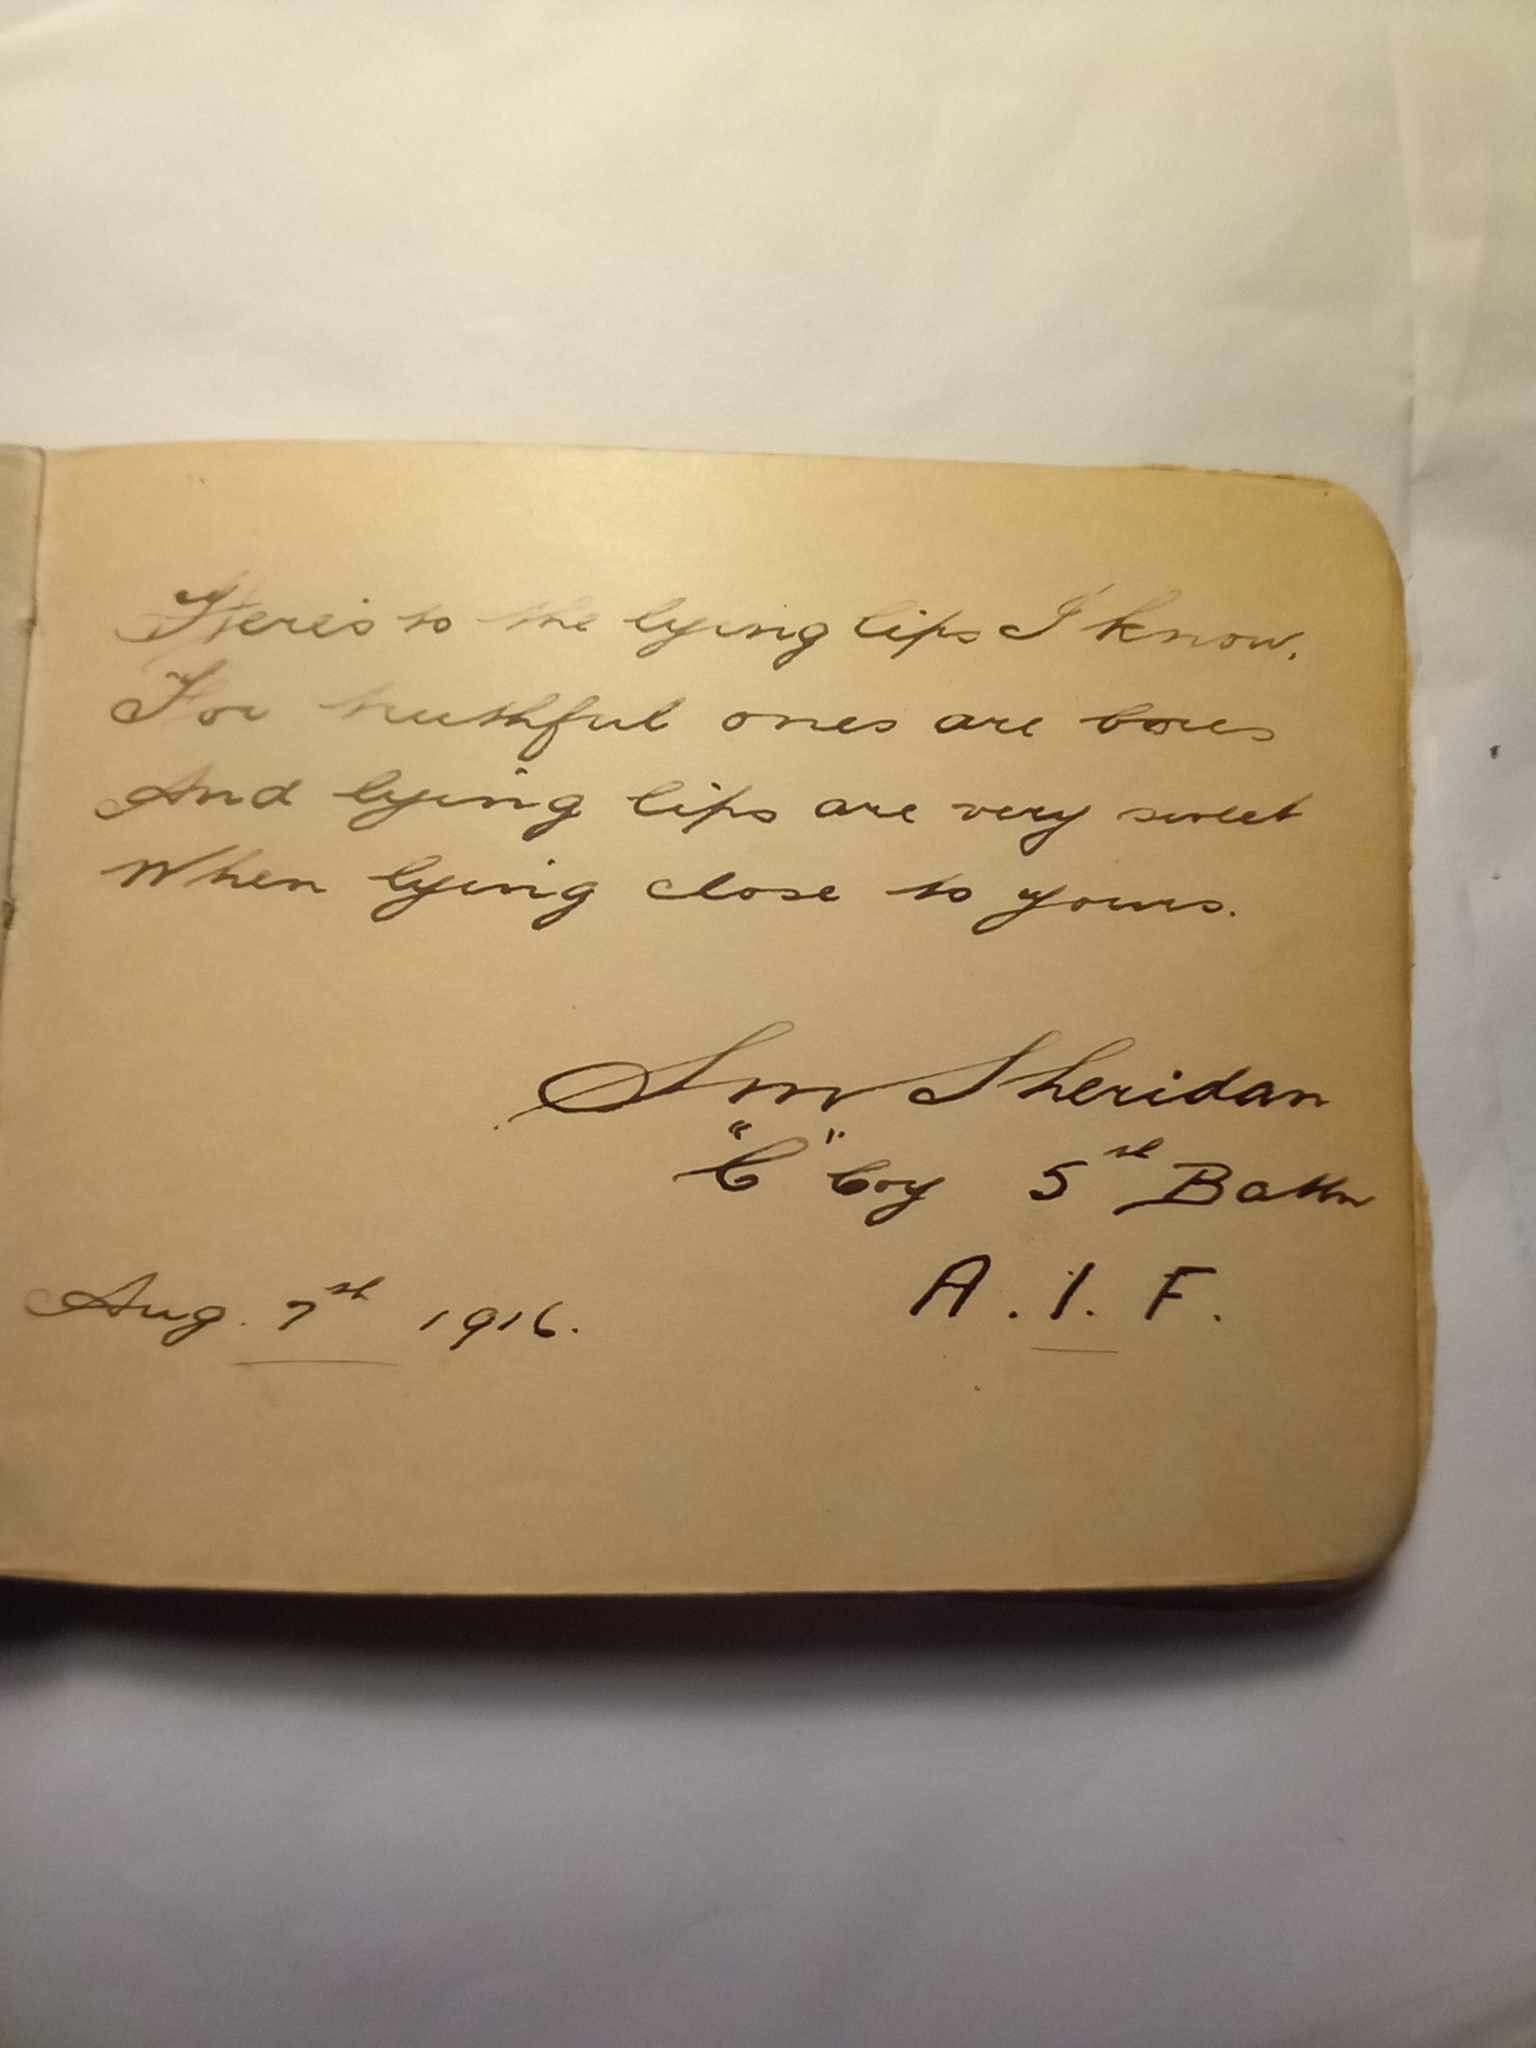 Here's to the lying lips I know.
For truthful ones are bores
And lying lips are very sweet
When lying close to yours.
Sheridan
"C" Coy 5st Battn
Aug. 7st 1916.
A.I.F.